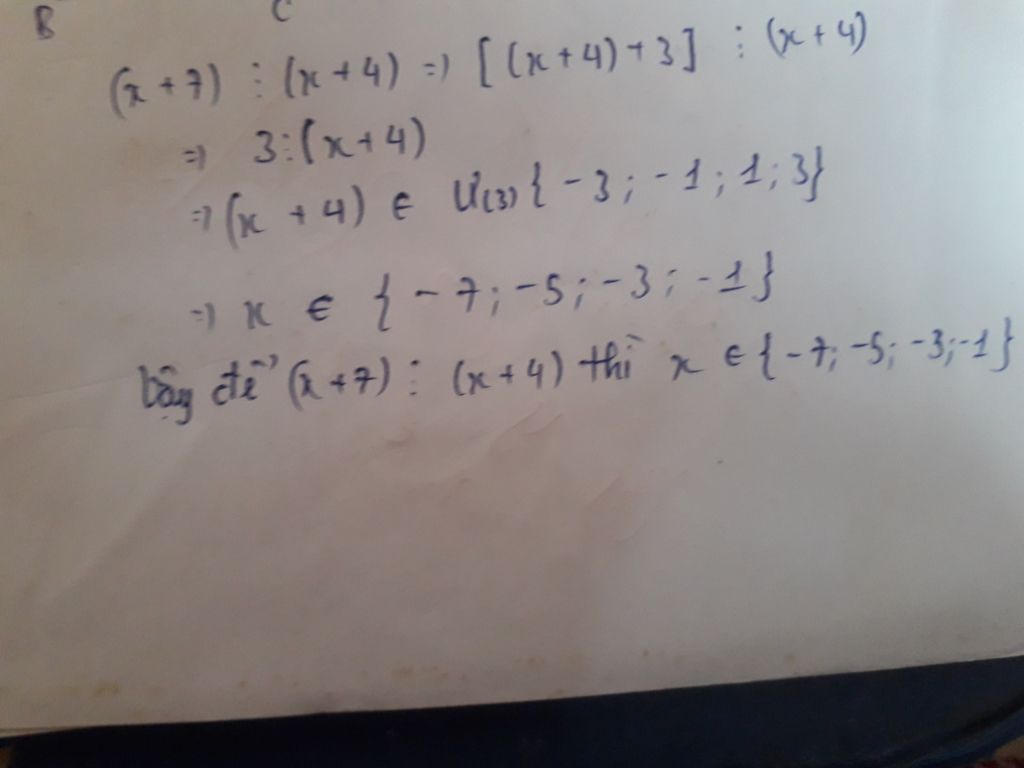 B C
(x + 7) ⋮ (x + 4) => [(x + 4) + 3] ⋮ (x + 4)
=> 3 ⋮ (x + 4)
=> (x + 4) ∈ Ư(3) { - 3 ; - 1 ; 1 ; 3}
=> x ∈ { - 7 ; - 5 ; - 3 ; - 1 }
Vậy để (x + 7) ⋮ (x + 4) thì x ∈ { - 7 ; - 5 ; - 3 ; - 1 }